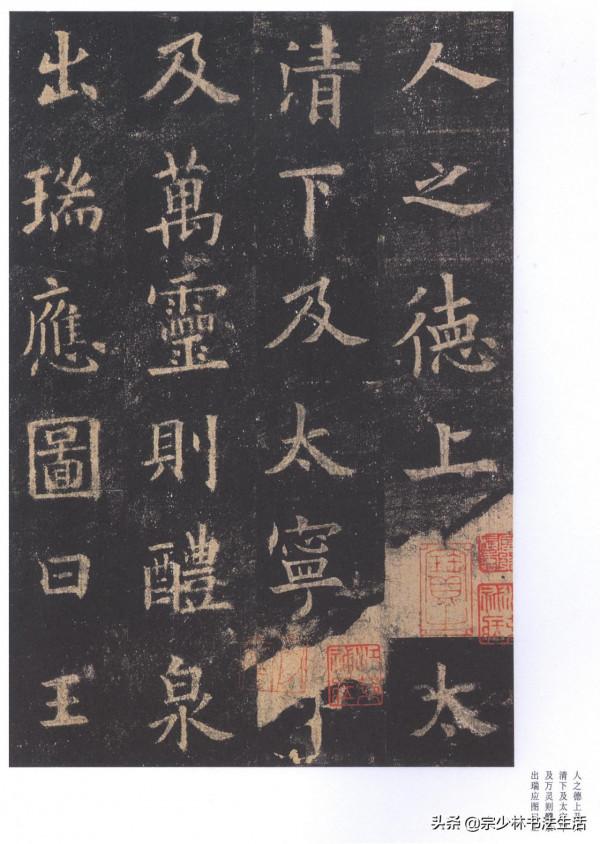 人之德上太
清下及太寧
及萬靈則醴泉
出瑞應圖曰王
人之德上
清下及太
及万灵则
出瑞应图
头条 @宗少林书法生活